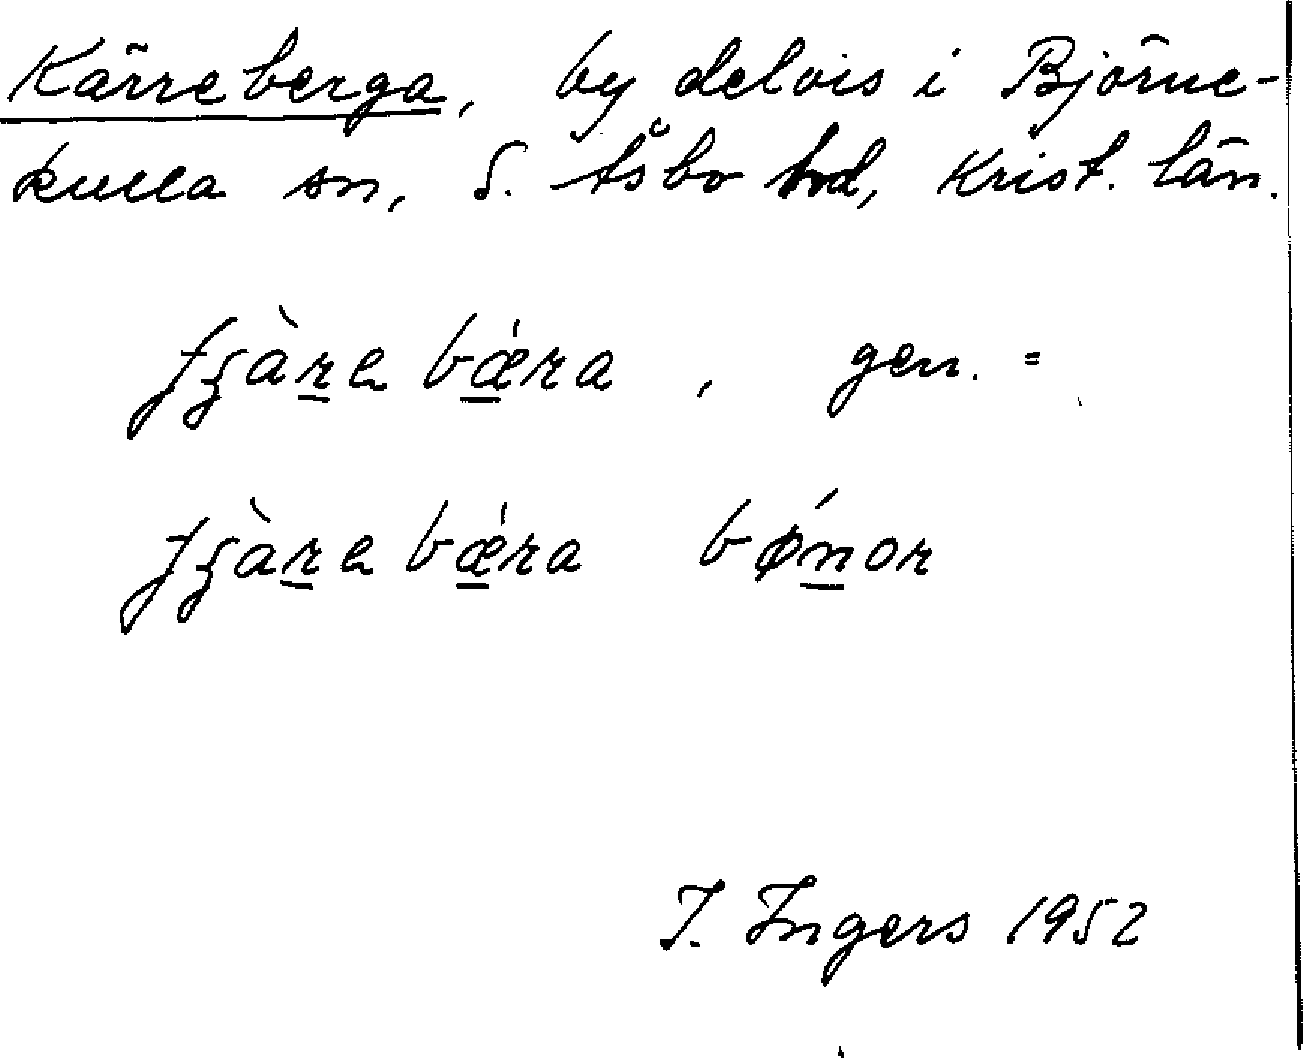 Kärreberga, by delvis i Björne-
kulla sn, S. Åsbo hd, Krist. län.
fʒàre bǽra, gen. =
fʒàre bǽra bǿnor
I. Ingers 1952